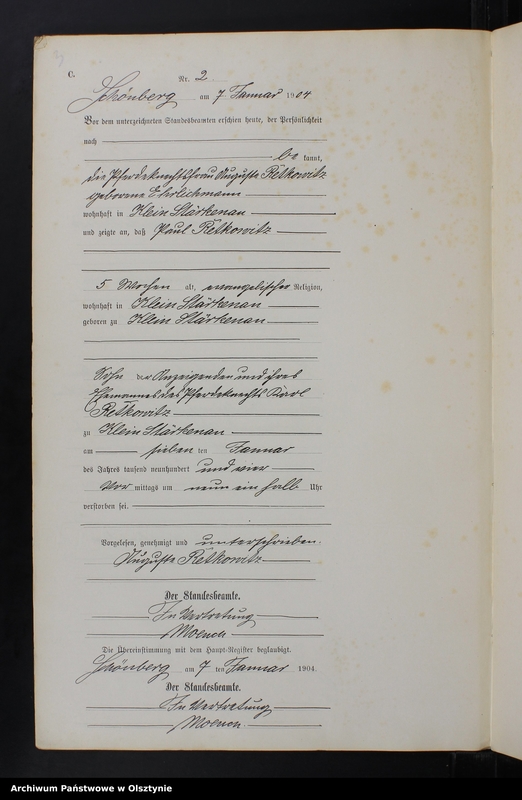 C.
Nr. 2
Schönberg am 7 Januar 1904
Vor dem unterzeichneten Standesbeamten erschien heute, der Persönlichkeit
nach
be kannt,
die Pferdeknechtsfrau Auguste Retkowitz
geborene Ehrlichmann
wohnhaft in Klein Stärkenau
und zeigte an, daß Paul Retkowitz
5 Wochen alt, evangelischer Religion,
wohnhaft in Klein Stärkenau
geboren zu Klein Stärkenau
Sohn der Anzeigenden und ihres
Ehemannes des Pferdeknechts Karl
Retkowitz
zu Klein Stärkenau
am sieben ten Januar
des Jahres tausend neunhundert und vier
Vor mittags um neun ein halb Uhr
verstorben sei.
Vorgelesen, genehmigt und unterschrieben.
Auguste Retkowitz
Der Standesbeamte.
In Vertretung
Moench
Die Übereinstimmung mit dem Haupt-Register beglaubigt.
Schönberg am 7 ten Januar 1904.
Der Standesbeamte.
In Vertretung
Moench
Archiwum Państwowe w Olsztynie